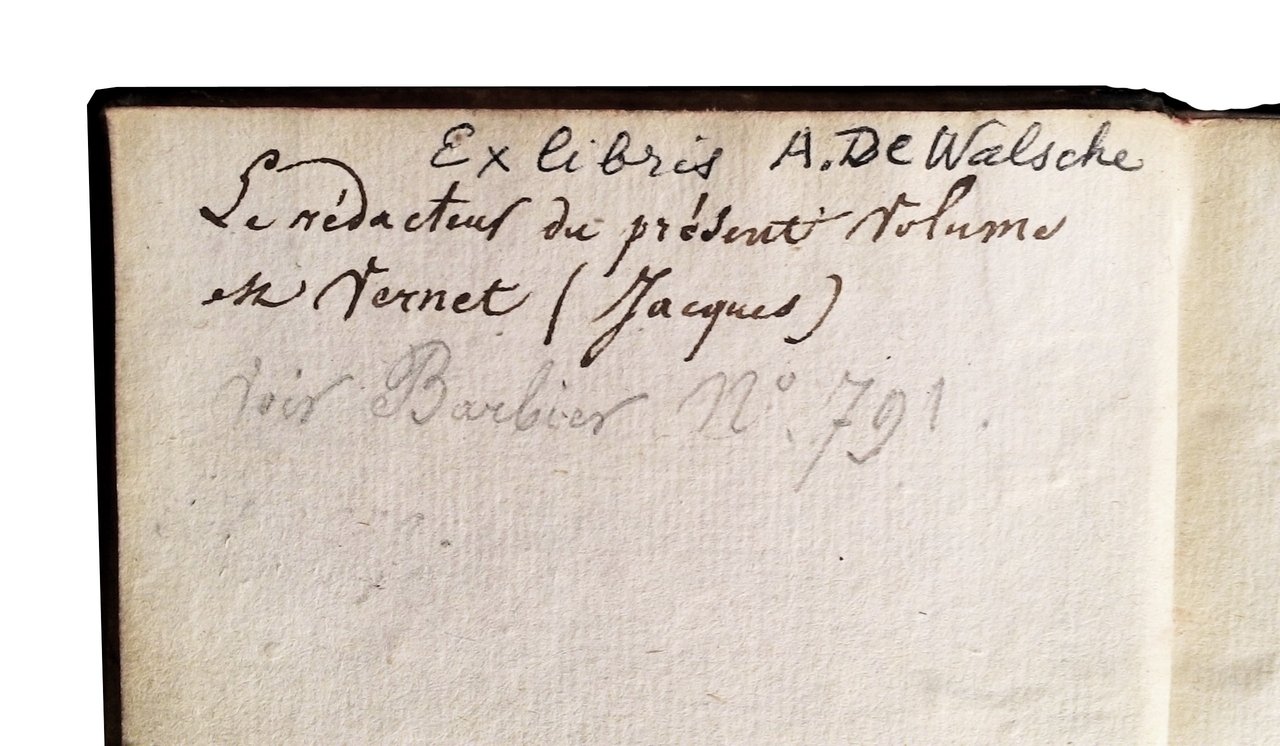 Ex libris A. De Walsche
Le rédacteur du présent volume
est Vernet (Jacques)
voir Barbier N° 791.